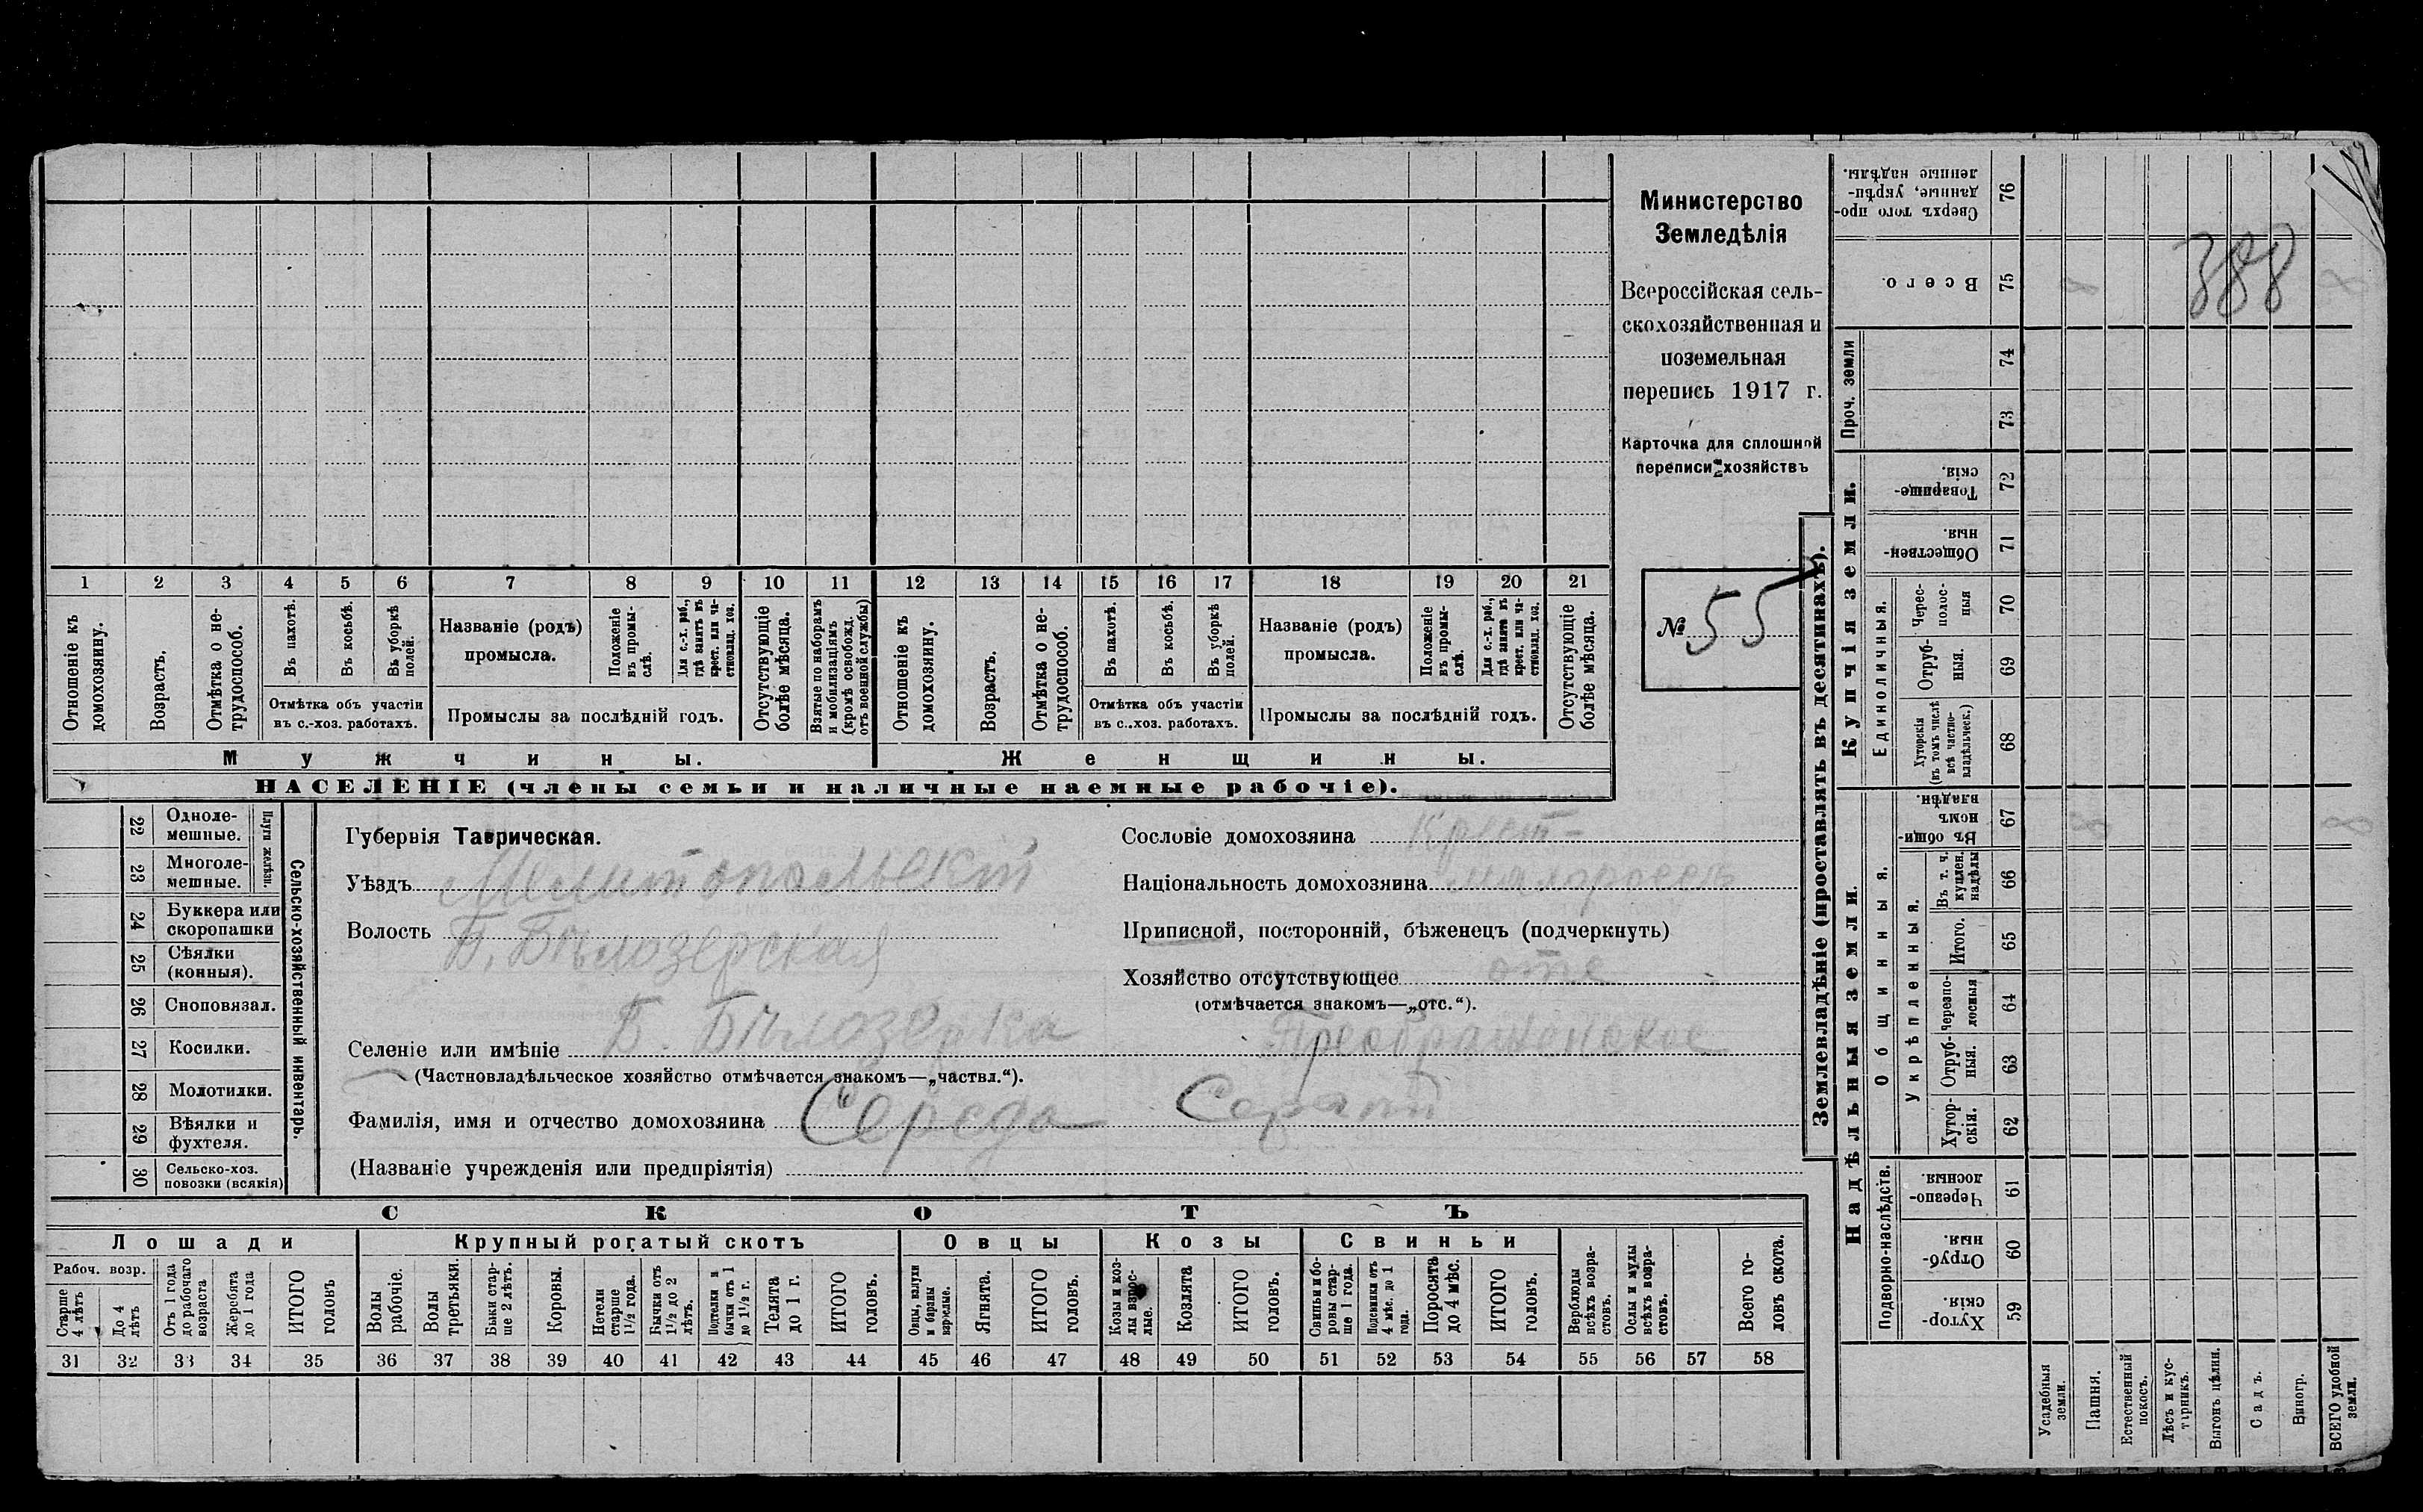 Министерство
Земледѣлія
Всероссійская сель-
скохозяйственная и
поземельная
перепись 1917 г.
Карточка для сплошной
переписи хозяйствъ
№ 55
388
1 2 3 4 5 6 7 8 9 10 11 12 13 14 15 16 17 18 19 20 21
Отношеніе къ домохозяину.
Возрастъ.
Отмѣтка о не-трудоспособ.
Въ пахотѣ.
Въ косьбѣ.
Въ уборкѣ полей.
Отмѣтка объ участіи
въ с.-хоз. работахъ.
Названіе (родъ)
промысла.
Положеніе въ промы-слѣ.
Для с.-х. раб., гдѣ занятъ въ крест. или ча-стновлад. хоз.
Промыслы за послѣдній годъ.
Отсутствующіе болѣе мѣсяца.
Взятые по наборамъ и мобилизаціямъ (кромѣ освобожд. отъ военной службы)
Отношеніе къ домохозяину.
Возрастъ.
Отмѣтка о не-трудоспособ.
Въ пахотѣ.
Въ косьбѣ.
Въ уборкѣ полей.
Отмѣтка объ участіи
въ с.-хоз. работахъ.
Названіе (родъ)
промысла.
Положеніе въ промы-слѣ.
Для с.-х. раб., гдѣ занята въ крест. или ча-стновлад. хоз.
Промыслы за послѣдній годъ.
Отсутствующіе болѣе мѣсяца.
Мужчины.
Женщины.
НАСЕЛЕНІЕ (члены семьи и наличные наемные рабочіе).
22 Одноле-мешные.
23 Многоле-мешные.
Плуги желѣзн.
24 Буккера или скоропашки
25 Сѣялки (конныя).
26 Сноповязал.
27 Косилки.
28 Молотилки.
29 Вѣялки и фухтеля.
30 Сельско-хоз. повозки (всякія)
Сельско-хозяйственный инвентарь.
Губернія Таврическая.
Уѣздъ Мелитопольскій
Волость Б. Бѣлозерская
Селеніе или имѣніе Б. Бѣлозерка Преображенское
(Частновладѣльческое хозяйство отмѣчается знакомъ—„частвл.“).
Фамилія, имя и отчество домохозяина Середа
(Названіе учрежденія или предпріятія)
Сословіе домохозяина Крест-
Національность домохозяина малороссъ
Приписной, посторонній, бѣженецъ (подчеркнуть)
Хозяйство отсутствующее отс
(отмѣчается знакомъ—„отс.“).
СКОТЪ
Лошади
Крупный рогатый скотъ
Овцы
Козы
Свиньи
Рабоч. возр.
Старше 4 лѣтъ
До 4 лѣтъ
Отъ 1 года до рабочаго возраста
Жеребята до 1 года
ИТОГО головъ
Волы рабочіе.
Волы третьяки.
Быки стар-ше 2 лѣтъ.
Коровы.
Нетели старше 1½ года.
Бычки отъ 1½ до 2 лѣтъ.
Подтелки и бычки отъ 1 до 1½ г.
Телята до 1 г.
ИТОГО головъ.
Овцы, валухи и бараны взрослые.
Ягнята.
ИТОГО головъ.
Козы и коз-лы взрос-лые.
Козлята
ИТОГО головъ.
Свиньи и бо-ровы стар-ше 1 года.
Подсвинки отъ 4 мѣс. до 1 года.
Поросята до 4 мѣс.
ИТОГО головъ.
Верблюды всѣхъ возра-стовъ.
Ослы и мулы всѣхъ возра-стовъ.
Всего го-ловъ скота.
31 32 33 34 35 36 37 38 39 40 41 42 43 44 45 46 47 48 49 50 51 52 53 54 55 56 57 58
Землевладѣніе (проставлять въ десятинахъ).
Купчія земли.
Надѣльныя земли.
Проч. земли
Единоличныя.
Общинныя.
Укрѣпленныя.
Подворно-наслѣдств.
76 Сверхъ того про-данные, укрѣп-ленные надѣлы.
75 Всего.
74
73
72 Товарище-скія.
71 Обществен-ныя
70 Черес-полос-ныя
69 Отруб-ныя.
68 Хуторскія (въ томъ числѣ всѣ частно-владѣльческ.)
67 Въ общин-номъ владѣн.
66 Въ т. ч. куплен. надѣлы
65 Итого.
64 Черезпо-лосныя
63 Отруб-ныя.
62 Хутор-скія.
61 Черезпо-лосныя.
60 Отруб-ныя.
59 Хутор-скія.
Усадебныя земли.
Пашня.
Естественный покосъ.
Лѣсъ и кус-тарникъ.
Выгонъ цѣлин.
Садъ.
Виногр.
ВСЕГО удобной земли.